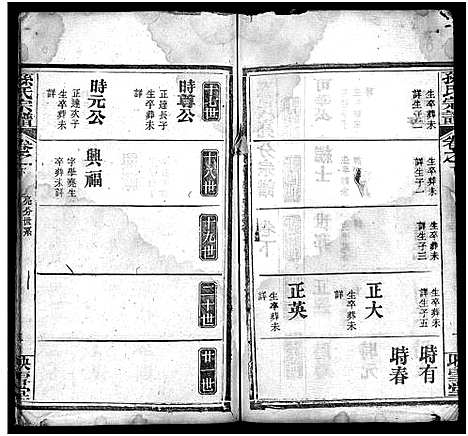 孫氏宗譜
卷之
詳生子一
生卒葬未
詳生子一
詳生子三
正大
生卒葬未
詳生子五
正英
生卒葬未
詳
時有
時春
映雪堂
十七世
十八世
十九世
二十世
廿一世
時尊公
正達長子
生卒葬未
詳
時元公
正達次子
生卒葬未
詳
興福
字學堯生
卒葬未詳
孫氏宗譜
卷之下
亮分世系
一
映雪堂